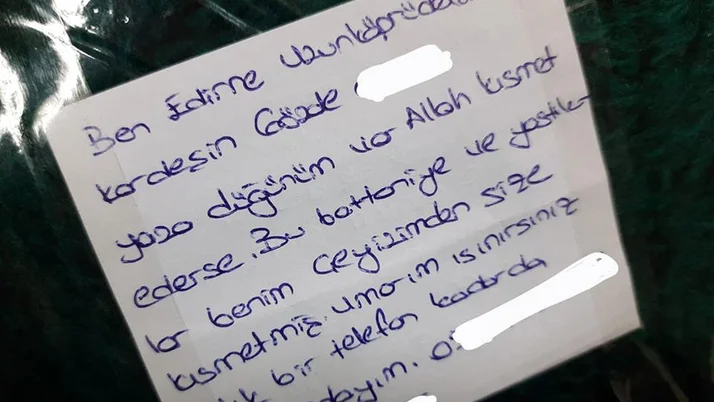 Ben Edirne Uzunköprüde
kardeşin Gözde
yaza düğünüm var Allah kısmet
ederse. Bu battaniye ve yastık
lar benim çeyizimden size
kısmetmiş. umarım ısınırsınız
bir telefon kadarda
0